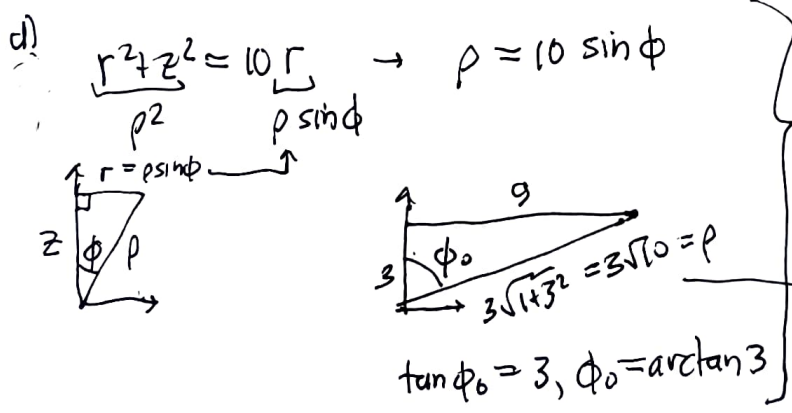 d)
r²+z² = 10 r → ρ = 10 sinϕ
ρ² ρ sinϕ
r = ρsinϕ
z ϕ ρ
9
3 ϕ₀ 3√1+3² = 3√10 = ρ
tan ϕ₀ = 3, ϕ₀ = arctan 3